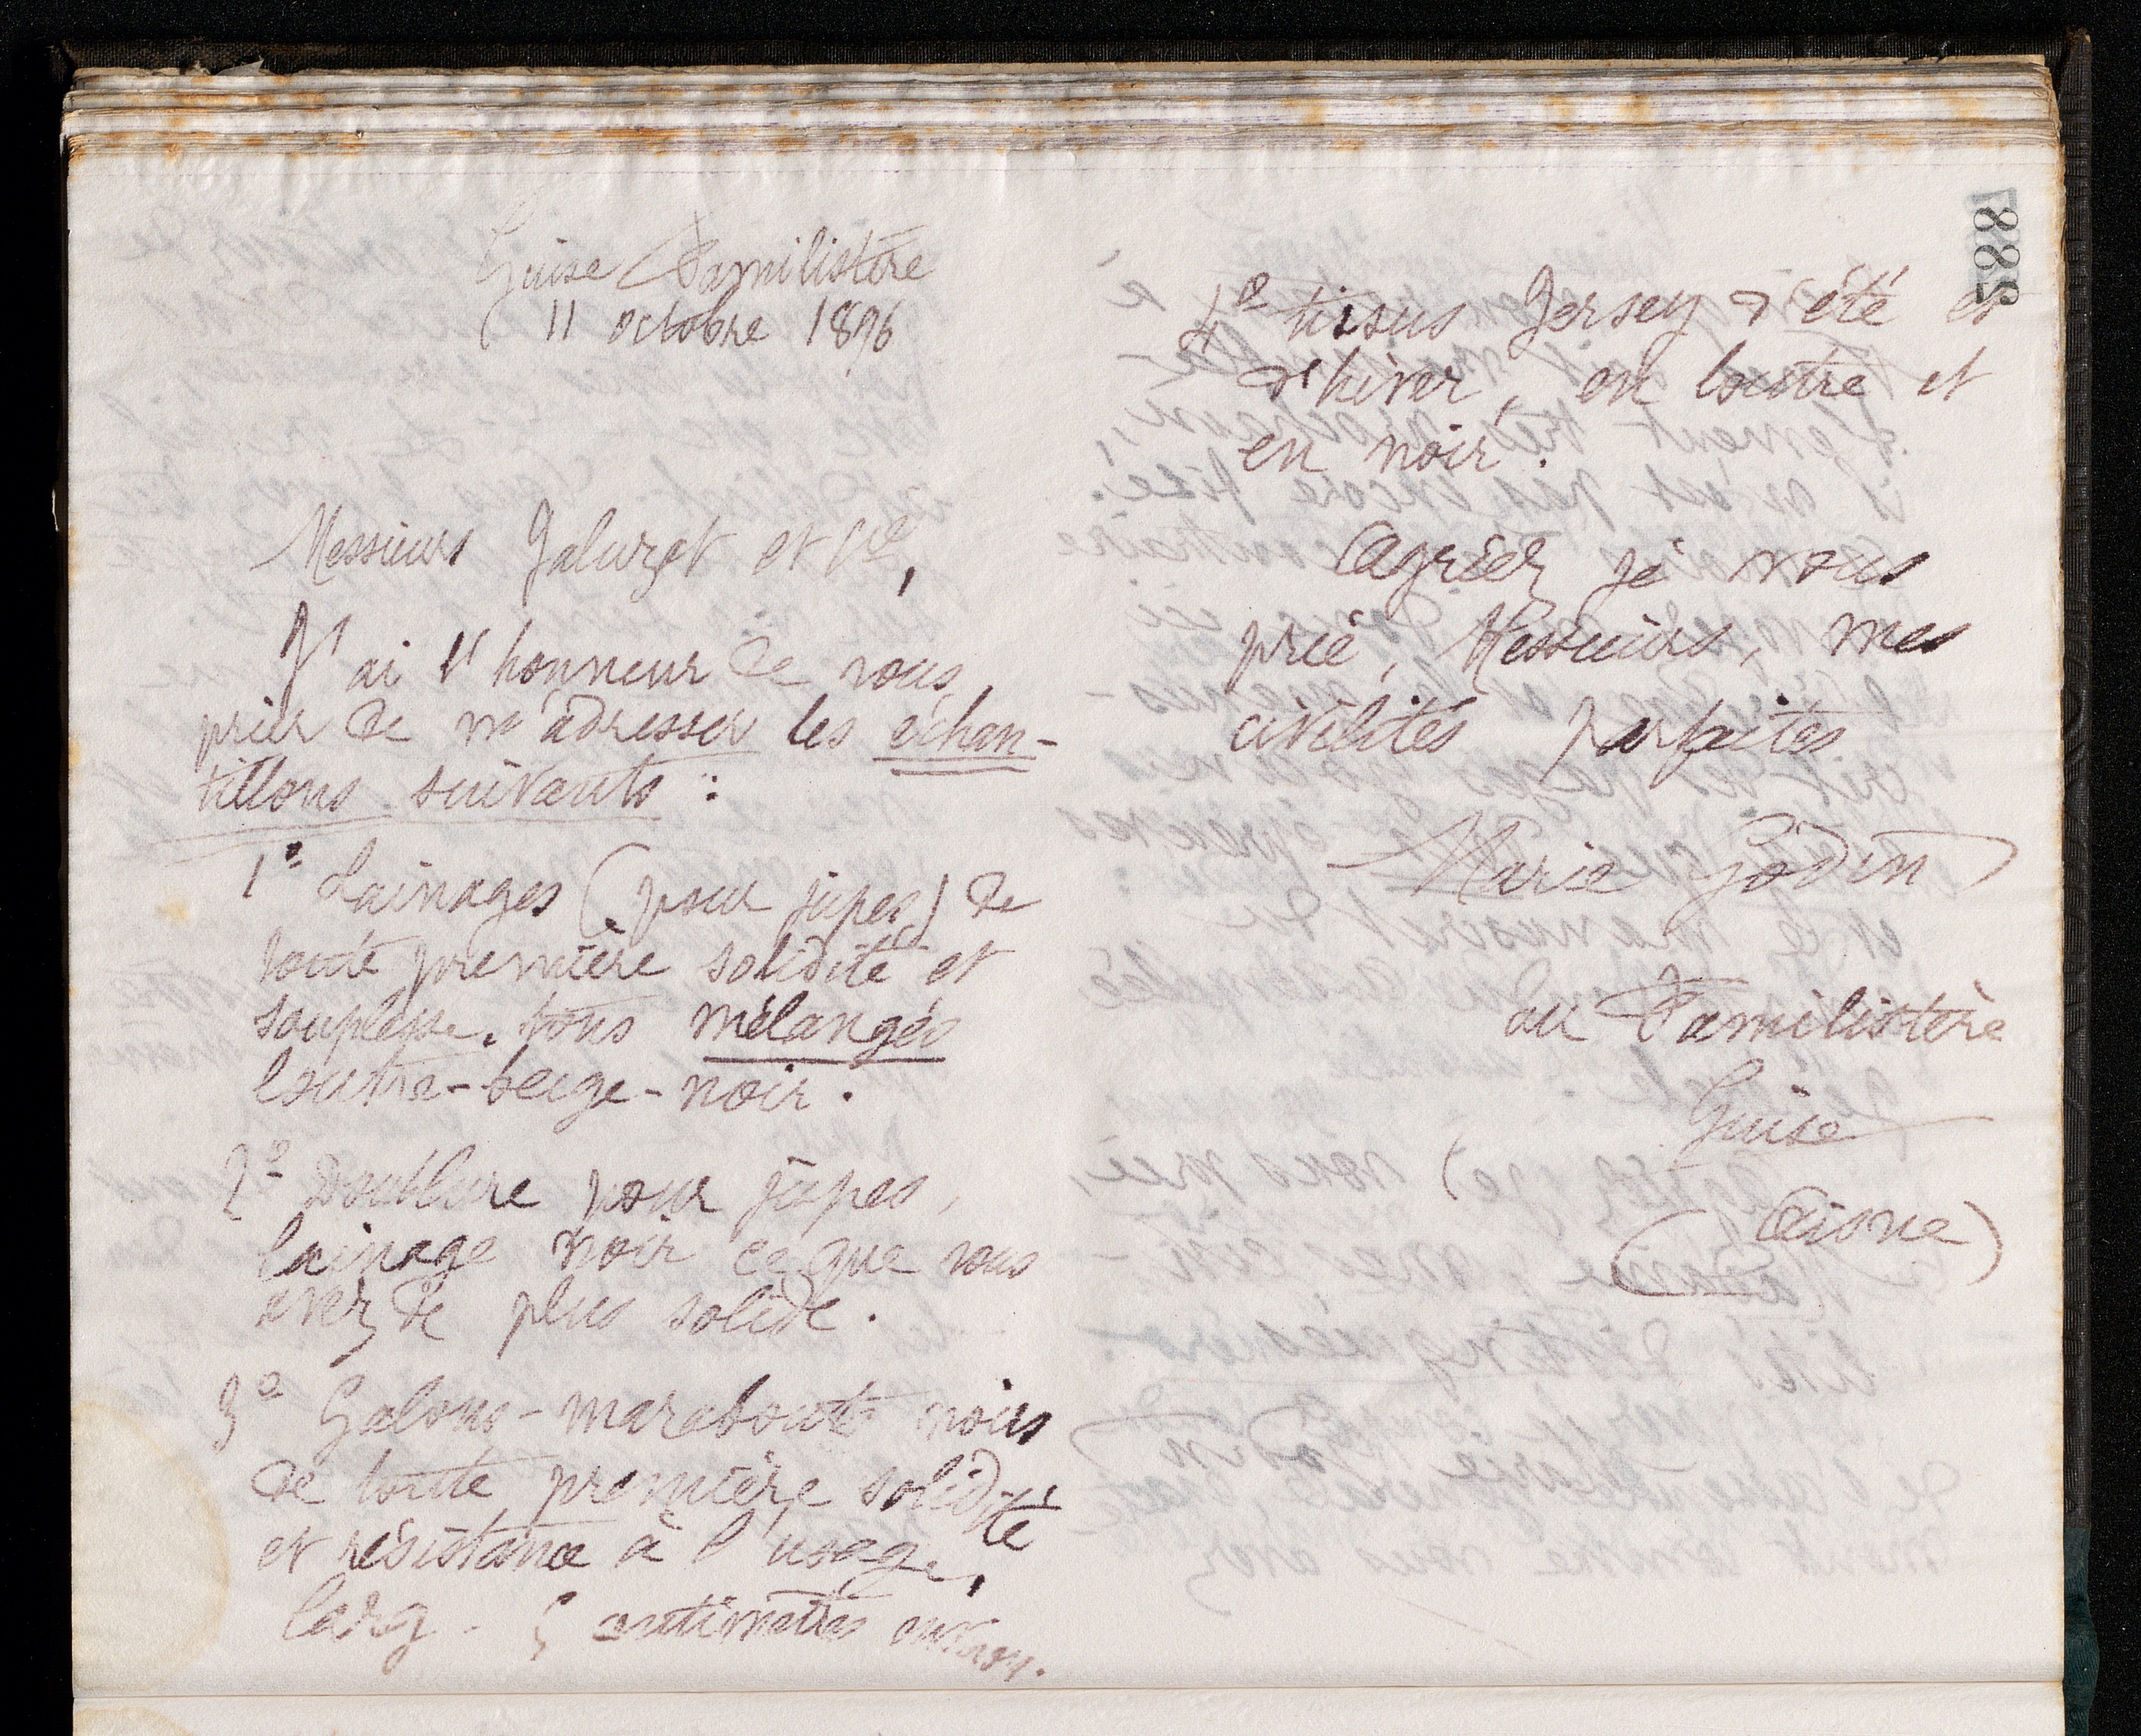 Guise Familistère
11 octobre 1896
Messieurs Jaluzot et Cie,
J'ai l'honneur de vous
prier de m'adresser les échan-
tillons suivants :
1º Lainages (pour jupes) de
toute première solidité et
souplesse. tons mélangés
loutre-beige-noir.
2º Doublure pour jupes,
lainage noir ce que vous
avez de plus solide.
3º Galons-marabouts noirs
de toute première solidité
et résistance à l'usage,
larg - 5 centimètres environ.
882
4º tissus Jersey d'été et
d'hiver, en loutre et
en noir.
Agréez je vous
prie, Messieurs, mes
civilités parfaites
Marie Godin
au Familistère
Guise
(Aisne)